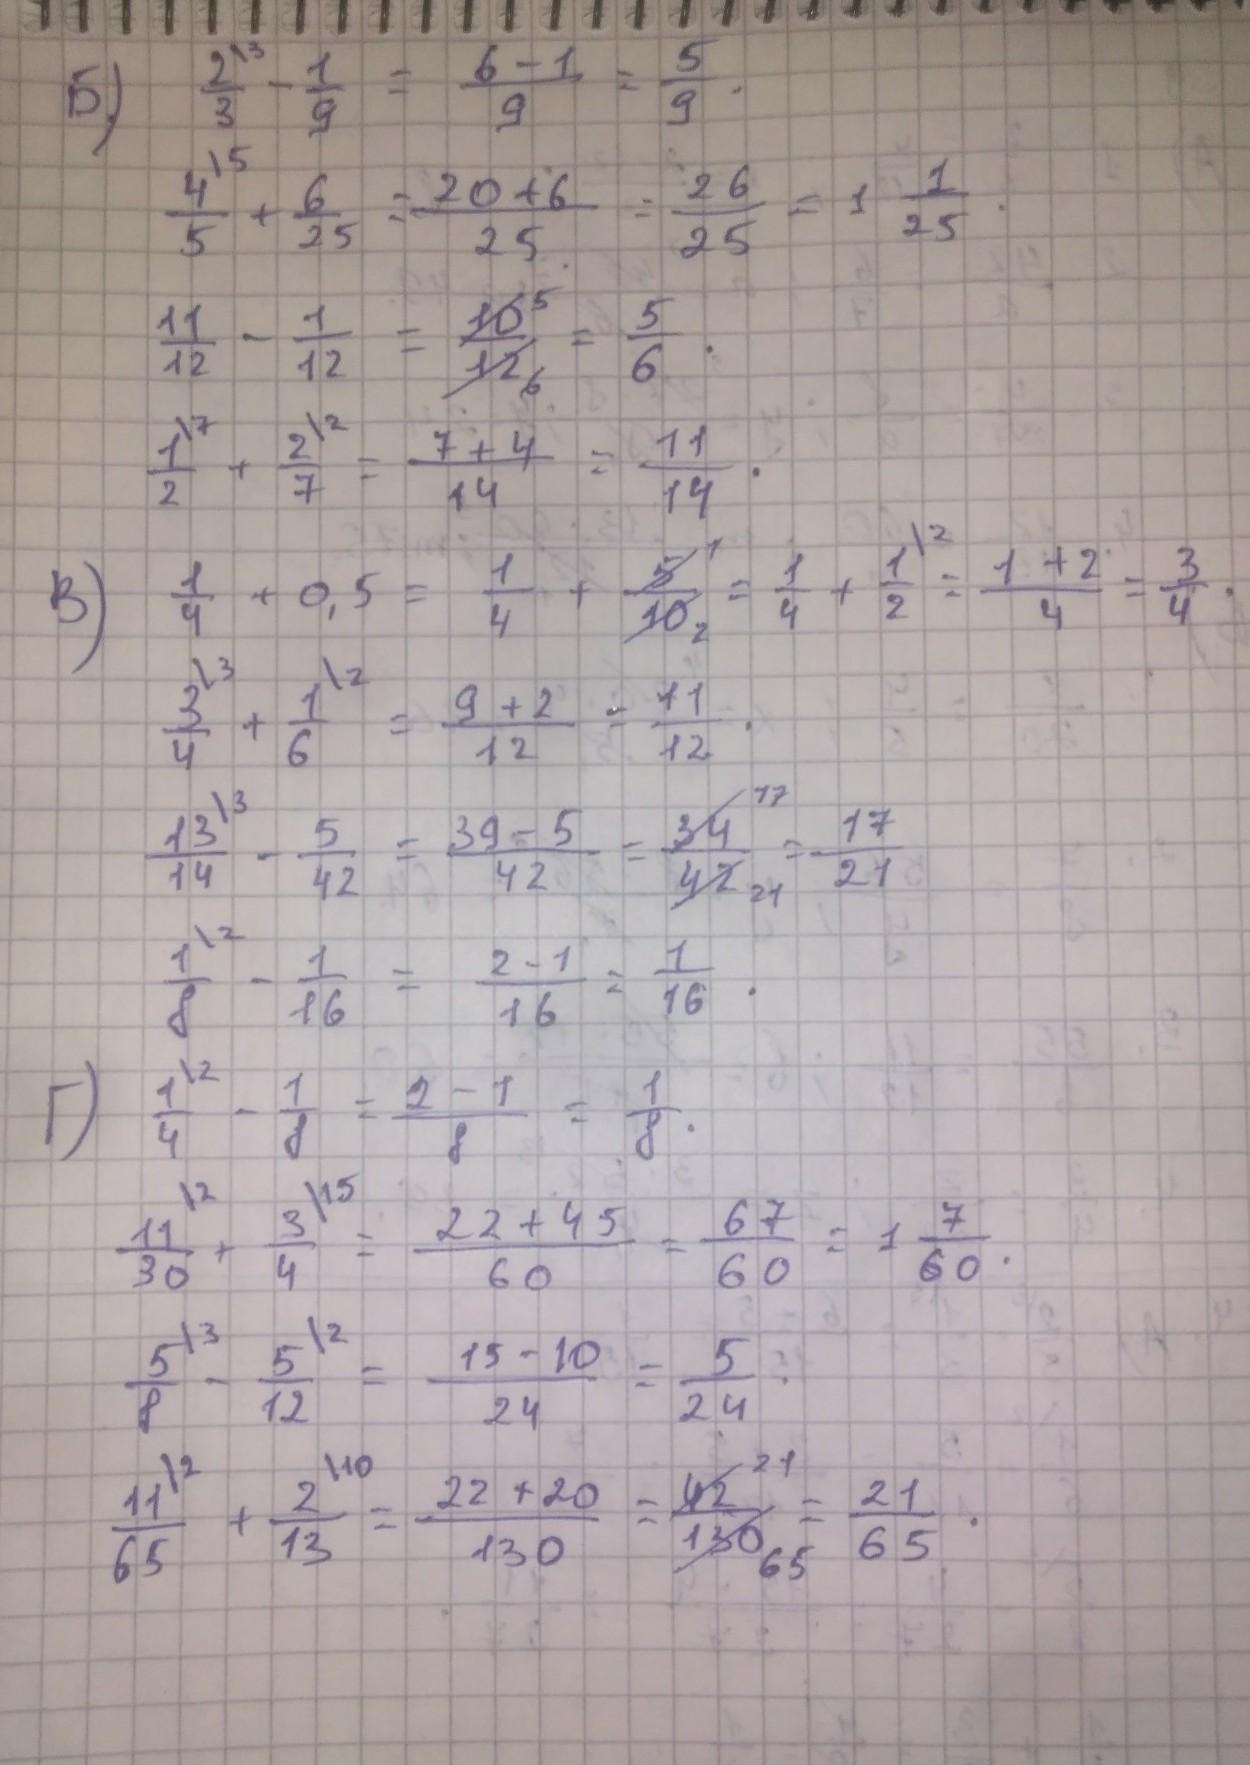 Б) 2\3/3 - 1/9 = (6-1)/9 = 5/9.
4\5/5 + 6/25 = (20+6)/25 = 26/25 = 1 1/25.
11/12 - 1/12 = 10 5/12 6 = 5/6.
1\7/2 + 2\2/7 = (7+4)/14 = 11/14.
В) 1/4 + 0,5 = 1/4 + 5 1/10 2 = 1/4 + 1\2/2 = (1+2)/4 = 3/4.
3\3/4 + 1\2/6 = (9+2)/12 = 11/12.
13\3/14 - 5/42 = (39-5)/42 = 34 17/42 21 = 17/21
1\2/8 - 1/16 = (2-1)/16 = 1/16.
Г) 1\2/4 - 1/8 = (2-1)/8 = 1/8.
11\2/30 + 3\15/4 = (22+45)/60 = 67/60 = 1 7/60.
5\3/8 - 5\2/12 = (15-10)/24 = 5/24.
11\2/65 + 2\10/13 = (22+20)/130 = 42 21/130 65 = 21/65.